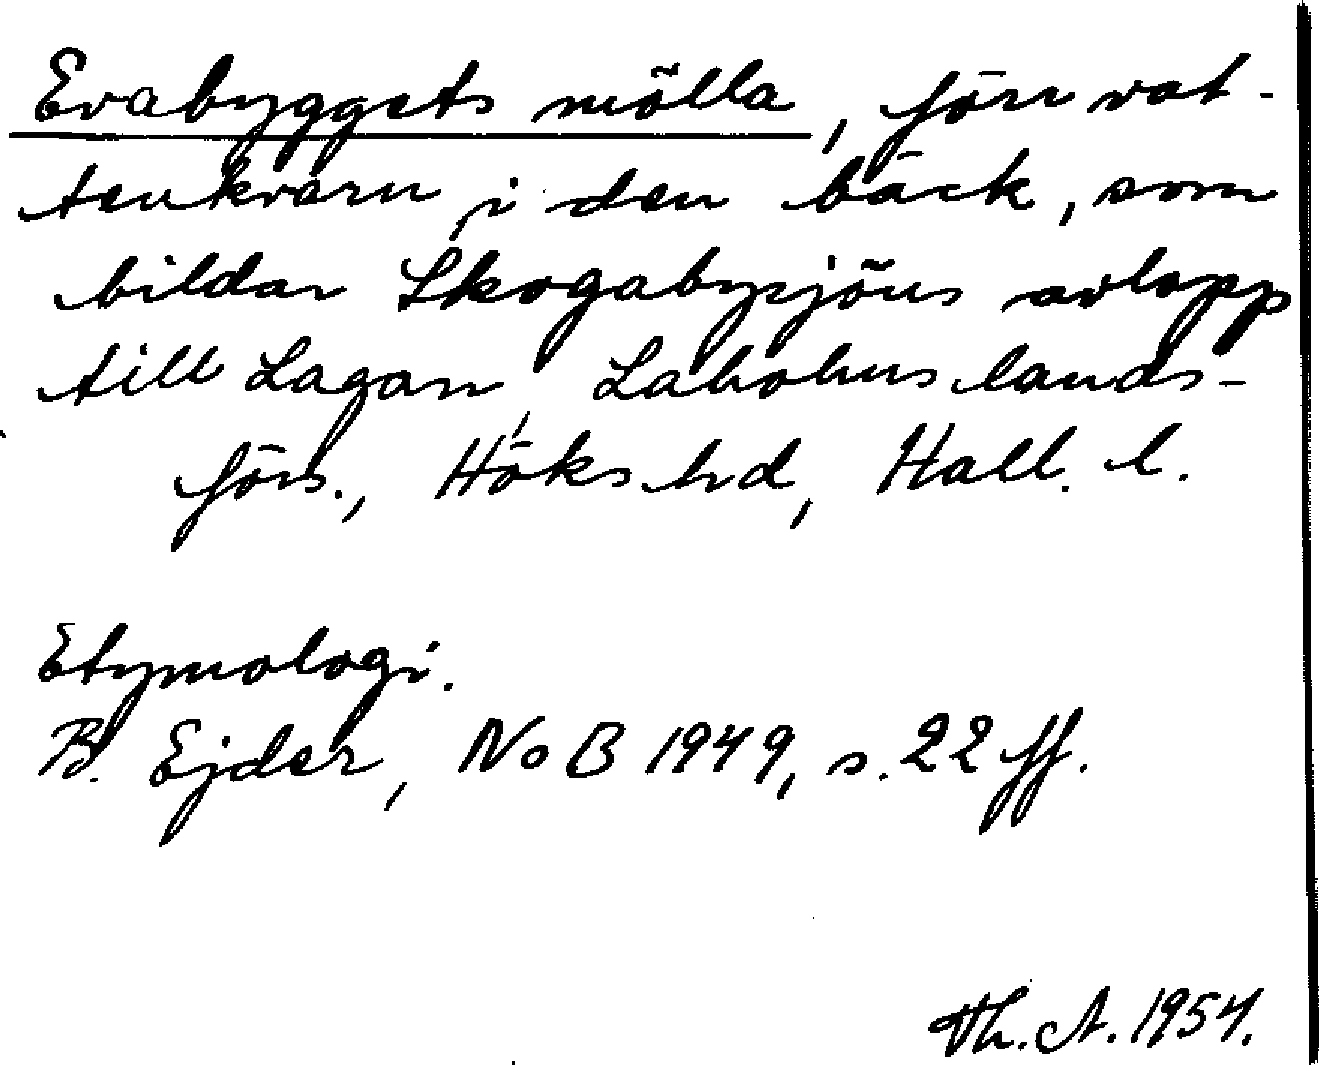 Evabyggets mölla, förr vat-
tenkvarn i den bäck, som
bildar Skogabysjöns avlopp
till Lagan, Laholms lands-
förs., Höks hd, Hall. l.
Etymologi.
B. Ejder, NoB 1949, s. 22 ff.
Th. A. 1954.